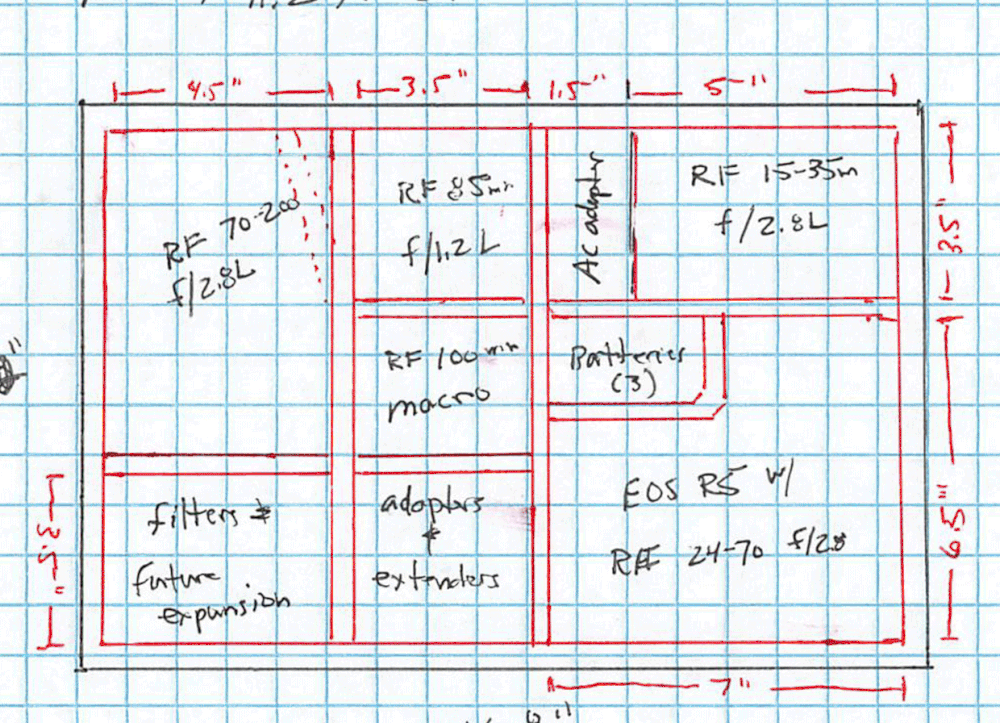 4.5" 3.5" 1.5" 5"
RF 70-200
f/2.8L
RF 85mm
f/1.2L
Ac adapter
RF 15-35m
f/2.8L
3.5"
RF 100mm
macro
Batteries
(3)
filters &
future
expansion
adapters
&
extenders
EOS R5 w/
RF 24-70 f/2.8
3.5"
6.5"
7"